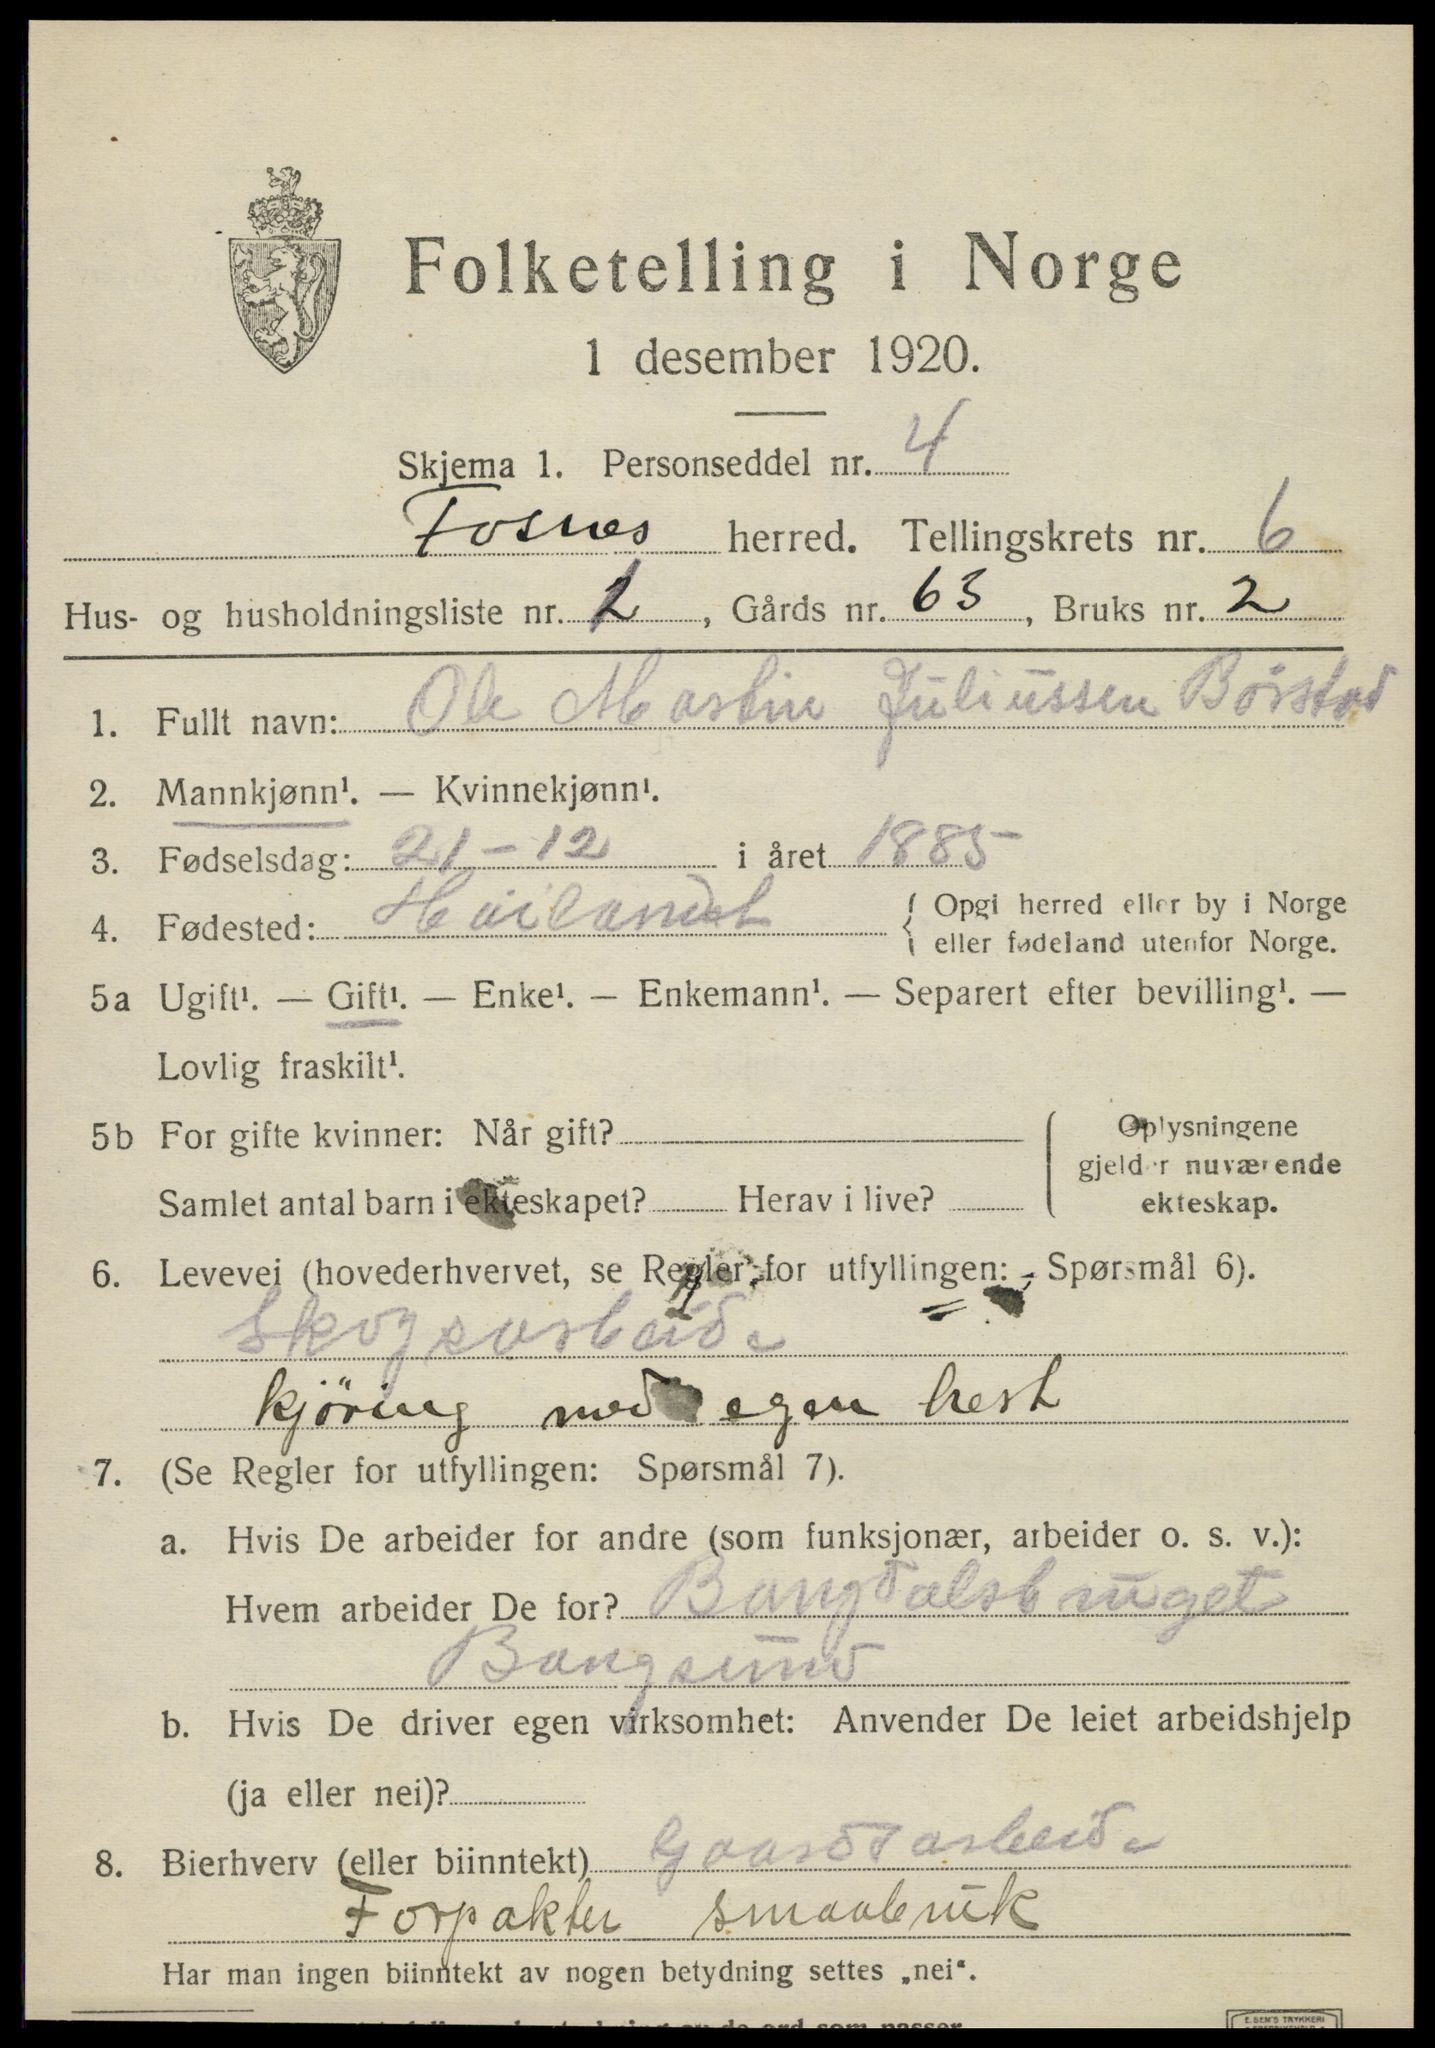 Folketelling i Norge
1 desember 1920.
Skjema 1. Personseddel nr. 4
Fosnes herred. Tellingskrets nr. 6
Hus- og husholdningsliste nr. 1, Gårds nr. 63, Bruks nr. 2
1. Fullt navn: Ole Martin Juliussen Børstad
2. Mannkjønn¹. — Kvinnekjønn¹.
3. Fødselsdag: 21-12 i året 1885
4. Fødested: { Opgi herred eller by i Norge
eller fødeland utenfor Norge.
5a Ugift¹. — Gift¹. — Enke¹. — Enkemann¹. — Separert efter bevilling¹. —
Lovlig fraskilt¹.
5b For gifte kvinner: Når gift?
Samlet antal barn i ekteskapet? Herav i live?
Oplysningene
gjelder nuværende
ekteskap.
6. Levevei (hovederhvervet, se Regler for utfyllingen: Spørsmål 6).
Skogsarbeide
kjöring med egen hest
7. (Se Regler for utfyllingen: Spørsmål 7).
a. Hvis De arbeider for andre (som funksjonær, arbeider o. s. v.):
Hvem arbeider De for? Bangdalsbruget
Bangsund
b. Hvis De driver egen virksomhet: Anvender De leiet arbeidshjelp
(ja eller nei)?
8. Bierhverv (eller biinntekt) Gaardsarbeide
Forpakter smaabruk
Har man ingen biinntekt av nogen betydning settes „nei“.
E. SEM'S TRYKKERI